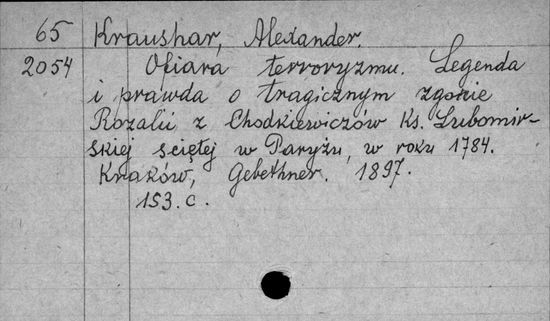 65 Kraushar, Alexander.
2054 Ofiara terroryzmu. Legenda
i prawda o tragicznym zgonie
Rozalii z Chodkiewiczów Ks. Lubomir-
skiej ściętej w Paryżu, w roku 1784.
Kraków, Gebethner. 1897.
153. c.